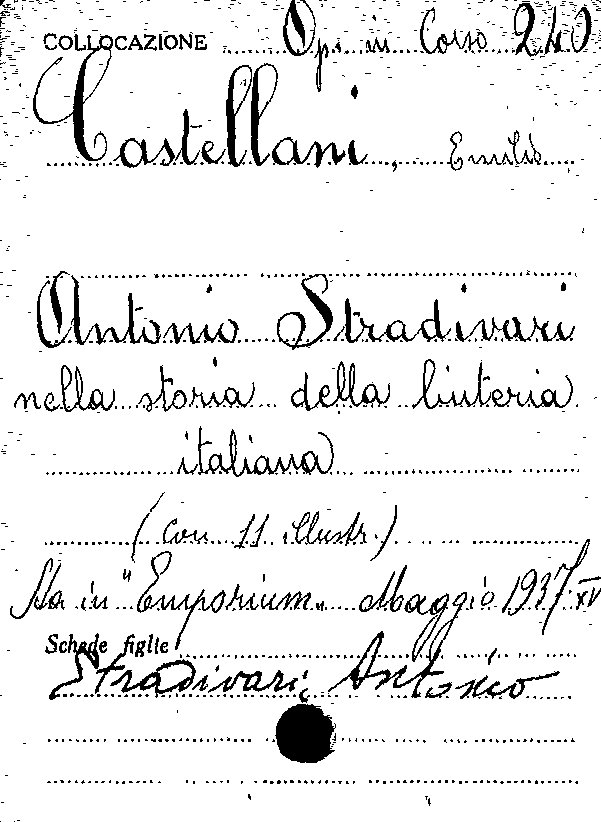 COLLOCAZIONE Op. in Corso 240
Castellani, Emilio
Antonio Stradivari
nella storia della liuteria
italiana
(con 11 illustr.)
Sta in "Emporium" Maggio 1937. XV
Schede figlie
Stradivari, Antonio